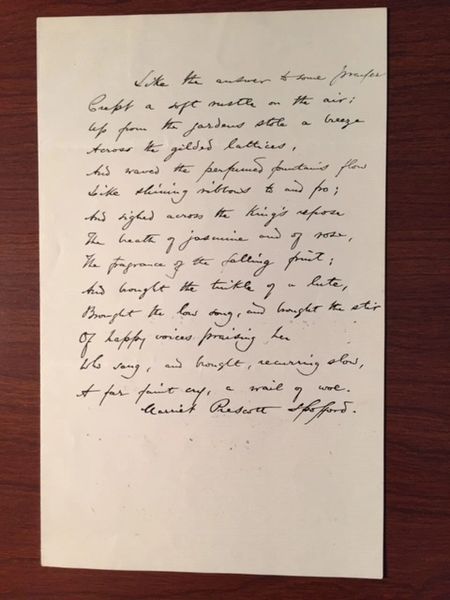 Like the answer to some prayer
Crept a soft rustle on the air;
Up from the gardens stole a breeze
Across the gilded lattices,
And waved the perfumed fountains flow
Like shining ribbons to and fro;
And sighed across the King's repose
The breath of jasmine and of rose,
The fragrance of the falling fruit;
And brought the tinkle of a lute,
Brought the low song, and brought the stir
Of happy voices praising her
Who sang, and brought, recurring slow,
A far faint cry, a wail of woe.
Harriet Prescott Spofford.